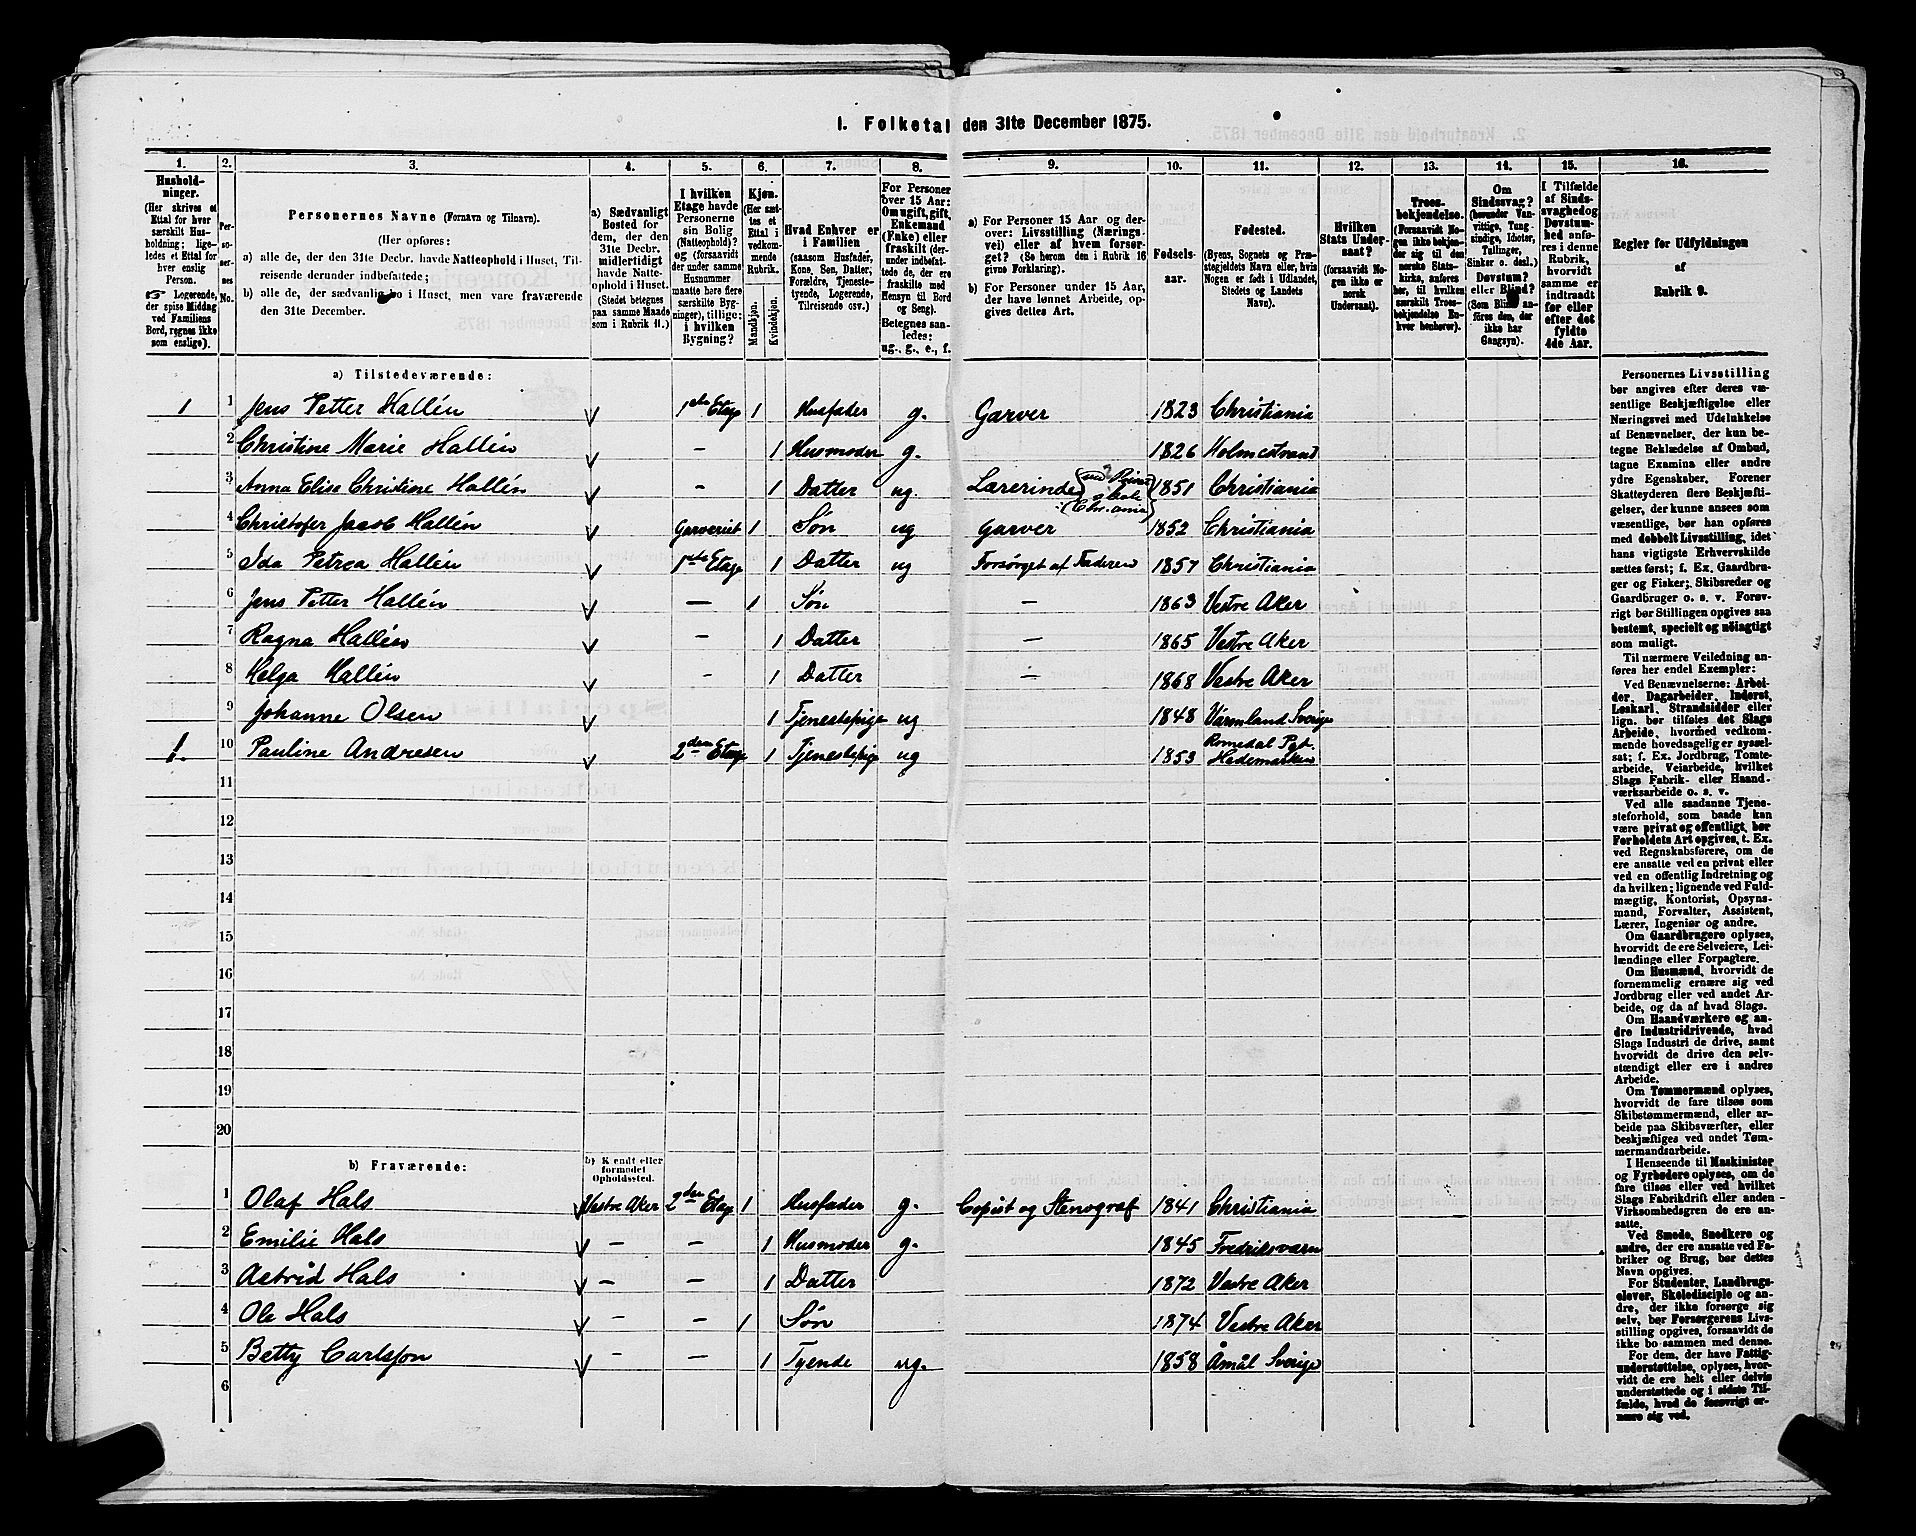 1. Folketal den 31te December 1875.
1. 2. 3. 4. 5. 6. 7. 8. 9. 10. 11. 12. 13. 14. 15. 16.
Hushold-
ninger.
(Her skrives et
Ettal for hver
særskilt Hus-
holdning; lige-
ledes et Ettal for
hver enslig
Person.
☞ Logerende,
der spise Middag
ved Familiens
Bord, regnes ikke
som enslige).
Per-
so-
ner-
nes
No.
Personernes Navne (Fornavn og Tilnavn).
(Her opføres:
a) alle de, der den 31te Decbr. havde Natteophold i Huset, Til-
reisende derunder indbefattede;
b) alle de, der sædvanlig bo i Huset, men vare fraværende
den 31te December.
a) Sædvanligt
Bosted for
dem, der den
31te Decbr.
midlertidigt
havde Natte-
ophold i Huset.
(Stedet betegnes
paa samme Maade
som i Rubrik 11.)
I hvilken
Etage havde
Personerne
sin Bolig
(Natteophold)?
og (forsaavidt
der under samme
Husnummer
maatte høre flere
særskilte Byg-
ninger), tillige:
i hvilken
Bygning?
Kjøn.
(Her sæt-
tes et
Ettal i
vedkom-
mende
Rubrik.
Mandkjøn.
Kvindekjøn.
Hvad Enhver er
i Familien
(saasom Husfader,
Kone, Søn, Datter,
Forældre, Tjeneste-
tyende, Logerende,
Tilreisende osv.)
For Personer
over 15 Aar:
Om ugift, gift,
Enkemand
(Enke) eller
fraskilt (der-
under indbefat-
tede de, der ere
fraskilte med
Hensyn til Bord
og Seng).
Betegnes saa-
ledes:
ug., g., e., f.
a) For Personer 15 Aar og der-
over: Livsstilling (Nærings-
vei) eller af hvem forsør-
get? (Se herom den i Rubrik 16
givne Forklaring).
b) For Personer under 15 Aar,
der have lønnet Arbeide, op-
gives dettes Art.
Fødsels-
aar.
Fødested.
(Byens, Sognets og Præ-
stegjeldets Navn eller, hvis
Nogen er født i Udlandet,
Stedets og Landets
Navn).
Hvilken
Stats Under-
saat?
(forsaavidt No-
gen ikke er
norsk
Undersaat).
Troes-
bekjendelse.
(Forsaavidt No-
gen ikke bekjen-
der sig til den
norske Stats-
kirke, anføres
her, til hvilken
særskilt Troes-
bekjendelse En-
hver henhører).
Om
Sindssvag?
(herunder Van-
vittige, Tung-
sindige, Idioter,
Tullinger,
Sinker o. desl.).
Døvstum?
eller Blind?
(Som Blind an-
føres den, der
ikke har
Gangsyn).
I Tilfælde
af Sinds-
svaghed og
Døvstum-
hed anfø-
res i denne
Rubrik,
hvorvidt
samme er
indtraadt
før eller
efter det
fyldte
4de Aar.
Regler for Udfyldningen
af
Rubrik 9.
a) Tilstedeværende:
1 1 Jens Petter Hallén 1ste Etage 1 Husfader g. Garver 1823 Christiania
2 Christine Marie Hallén - 1 Husmoder g. 1826 Holmestrand
3 Anna Elise Christine Hallén - 1 Datter ug. Lærerinde 1851 Christiania
4 Christofer Jacob Hallén Garveriet 1 Søn ug Garver 1852 Christiania
5 Ida Petrea Hallén 1ste Etage 1 Datter ug Forsørget af Faderen 1857 Christiania
6 Jens Petter Hallén - 1 Søn - 1863 Vestre Aker
7 Ragna Hallén - 1 Datter - 1865 Vestre Aker
8 Helga Hallén - 1 Datter - 1868 Vestre Aker
9 Johanne Olsen 1 Tjenestepige ug 1848 Värmland Sverige
1. 10 Pauline Andresen 2den Etage 1 Tjenestepige ug 1853 Romedal Pgt. Hedemarken
11
12
13
14
15
16
17
18
19
20
b) Fraværende:
b) Kendt eller
formodet
Opholdssted.
1 Olaf Hals Vestre Aker 2den Etage 1 Husfader g. Copist og Stenograf 1841 Christiania
2 Emilie Hals - - 1 Husmoder g. 1845 Fredriksværn
3 Astrid Hals - - 1 Datter 1872 Vestre Aker
4 Ole Hals - - 1 Søn 1874 Vestre Aker
5 Betty Carlsson - - 1 Tyende ug. 1858 Åmål Sverige
6
Personernes Livsstilling
bør angives efter deres væ-
sentlige Beskjæftigelse eller
Næringsvei med Udelukkelse
af Benævnelser, der kun be-
tegne Beklædelse af Ombud,
tagne Examina eller andre
ydre Egenskaber. Forener
Skatteyderen flere Beskjæfti-
gelser, der kunne ansees som
væsentlige, bør han opføres
med dobbelt Livsstilling, idet
hans vigtigste Erhvervskilde
sættes først; f. Ex. Gaardbru-
ger og Fisker; Skibsreder og
Gaardbruger o. s. v. Forøv-
rigt bør Stillingen opgives saa
bestemt, specielt og nøiagtigt
som muligt.
Til nærmere Veiledning an-
føres her endel Exempler:
Ved Benævnelserne: Arbei-
der, Dagarbeider, Inderst,
Løskarl, Strandsidder eller
lign. bør tilføies det Slags
Arbeide, hvormed vedkom-
mende hovedsagelig er syssel-
sat; f. Ex. Jordbrug, Tomte-
arbeide, Veiarbeide, hvilket
Slags Fabrik- eller Haand-
værksarbeide o. s. v.
Ved alle saadanne Tjene-
steforhold, som baade kan
være privat og offentligt, bør
Forholdets Art opgives, t. Ex.
ved Regnskabsførere, om de
ere ansatte ved en privat eller
ved en offentlig Indretning og
da hvilken; lignende ved Fuld-
mægtig, Kontorist, Opsyns-
mand, Forvalter, Assistent,
Lærer, Ingeniør og andre.
Om Gaardbrugere oplyses,
hvorvidt de ere Selveiere, Lei-
lændinge eller Forpagtere.
Om Husmænd, hvorvidt de
fornemmelig ernære sig ved
Jordbrug eller ved andet Ar-
beide, og da af hvad Slags.
Om Haandværkere og an-
dre Industridrivende, hvad
Slags Industri de drive, samt
hvorvidt de drive den selv-
stændigt eller ere i andres
Arbeide.
Om Tømmermænd oplyses,
hvorvidt de fare tilsøs som
Skibstømmermænd, eller ar-
beide paa Skibsværfter, eller
beskjæftiges ved andet Tøm-
mermandsarbeide.
I Henseende til Maskinister
og Fyrbødere oplyses, om de
fare tilsøs eller ved hvilket
Slags Fabrikdrift eller anden
Virksomhedsgren de ere an-
satte.
Ved Smede, Snedkere og
andre, der ere ansatte ved Fa-
briker og Brug, bør dettes
Navn opgives.
For Studenter, Landbrugs-
elever, Skoledisciple og an-
dre, der ikke forsørge sig
selv, bør Forsørgerens Livs-
stilling opgives, forsaavidt de
ikke bo sammen med denne.
For dem, der have Fattig-
understøttelse, oplyses, hvor-
vidt de ere helt eller delvis
understøttede og i sidste Til-
fælde, hvad de forøvrigt er-
nære sig ved.